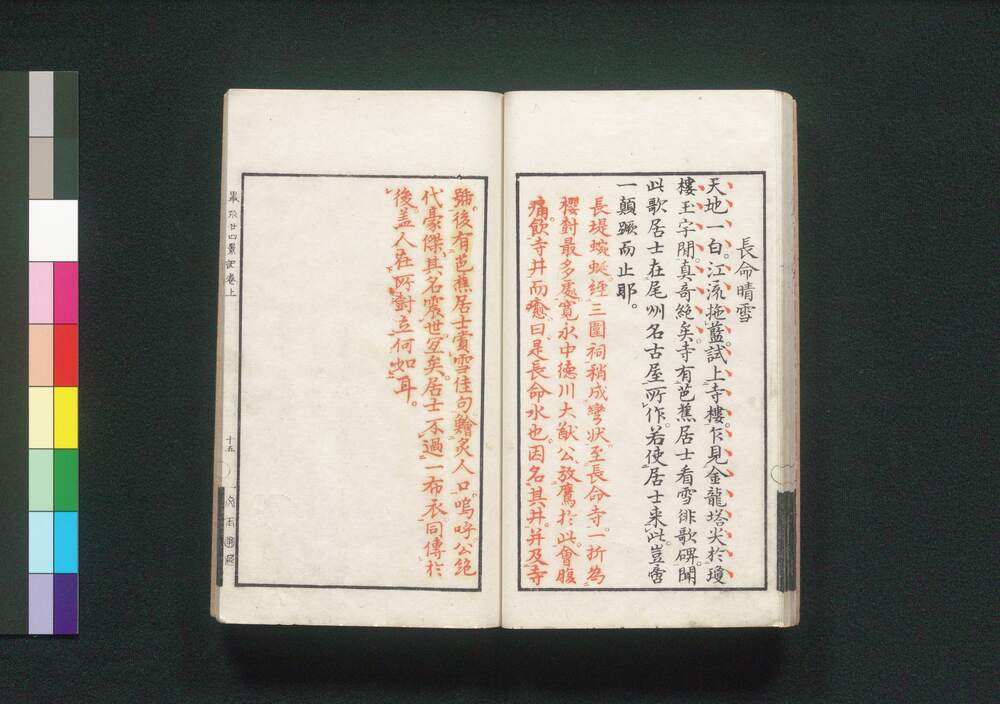 長命晴雪
天地一白。江流拖藍。試上寺樓。乍見金龍塔尖於瓊
樓玉宇閒。真奇絕矣。寺有芭蕉居士看雪俳歌碑。聞
此歌居士在尾州名古屋所作。若使居士来此。豈啻
一顛蹶而止耶。
長堤蜿蜒。經三圍祠稍成彎狀。至長命寺。一折為
櫻對最多處。寬永中德川大猷公放鷹於此。會腹
痛。飲寺井而癒。曰是長命水也。因名其井。并及寺
號。後有芭蕉居士賞雪佳句。鱠炙人口。嗚呼公絕
代豪傑。其名震世宜矣。居士不過一布衣。同傳於
後。盖人在所對立何如耳。
廿四景記卷上
十五